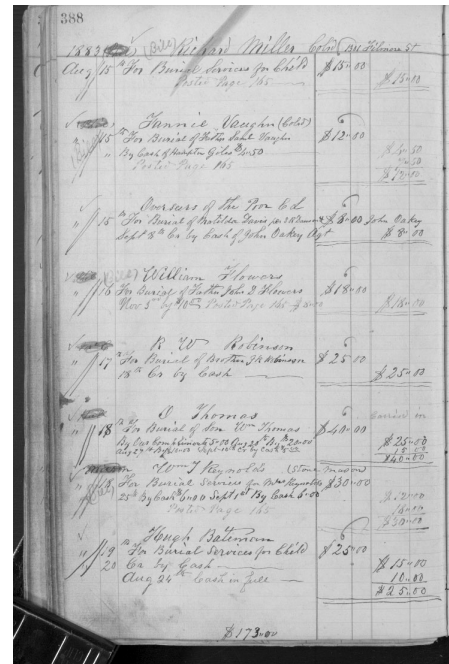 388
1883 (Bill) Richard Miller Col'd
Aug 15th For Burial Services for Child $15.00
Posted Page 165 $15.00
Fannie Vaughn (Col'd)
15th For Burial of Father Vaughn $12.00
" By Cash of Hampton 4.50
Posted Page 165 $12.00
Overseers of the Poor
" 15th For Burial of Matilda Davis $8.00 John Oakey
Sept 8th Cr by Cash of John Oakey Agt $8.00
(Bill) William Flowers
" 16 For Burial of Father John Flowers $18.00
Nov 5th Posted Page 165 $18.00
R W Robinson
" 17th For Burial of Brother Robinson $25.00
18th Cr by Cash $25.00
D Thomas
" 18th For Burial of Son Wm Thomas $40.00
By Our Compliments 5.00 Aug 20th By 20.00 $25.00
Aug 27th Sept 10th Cr by Cash 15.00
$40.00
Wm J Reynolds (Stone mason
" 18 For Burial Services for Mrs Reynolds $30.00
25th By Cash 6.00 Sept 1st By Cash 6.00 $12.00
Posted Page 165 18.00
$30.00
Hugh Bateman
" 19 For Burial Services for Child $25.00
20 Cr by Cash $15.00
Aug 24th Cash in full 10.00
$25.00
$173.00